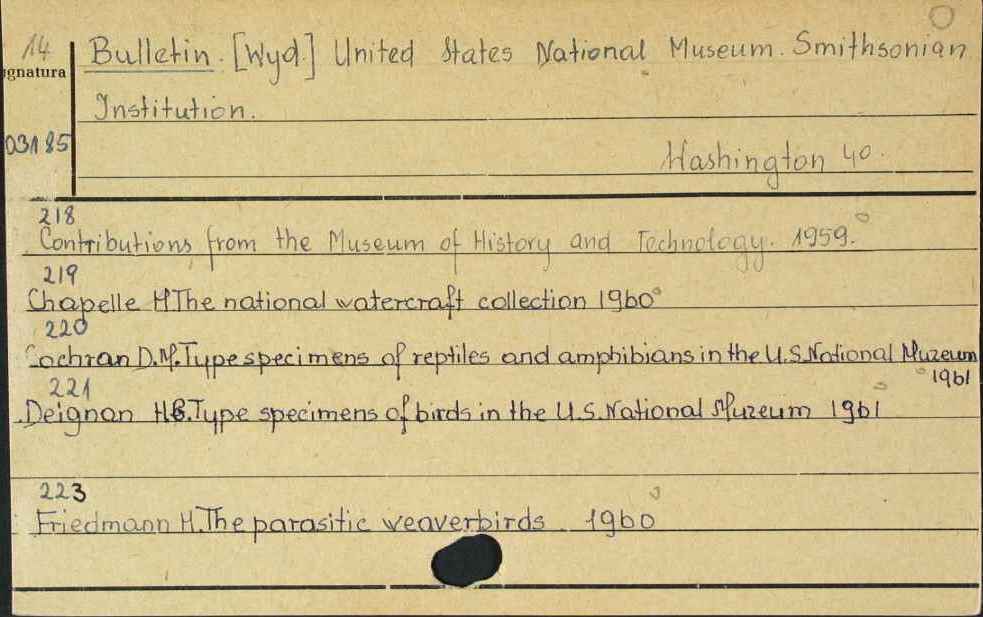 14
Bulletin. [Wyd.] United States National Museum. Smithsonian
gnatura
Institution.
03185
Washington 40.
218
Contributions from the Museum of History and Technology. 1959.
219
Chapelle H. The national watercraft collection 1960
220
Cochran D.M. Type specimens of reptiles and amphibians in the U.S. National Muzeum
1961
221
Deignan H.G. Type specimens of birds in the U.S. National Muzeum 1961
223
Friedmann H. The parasitic weaverbirds 1960